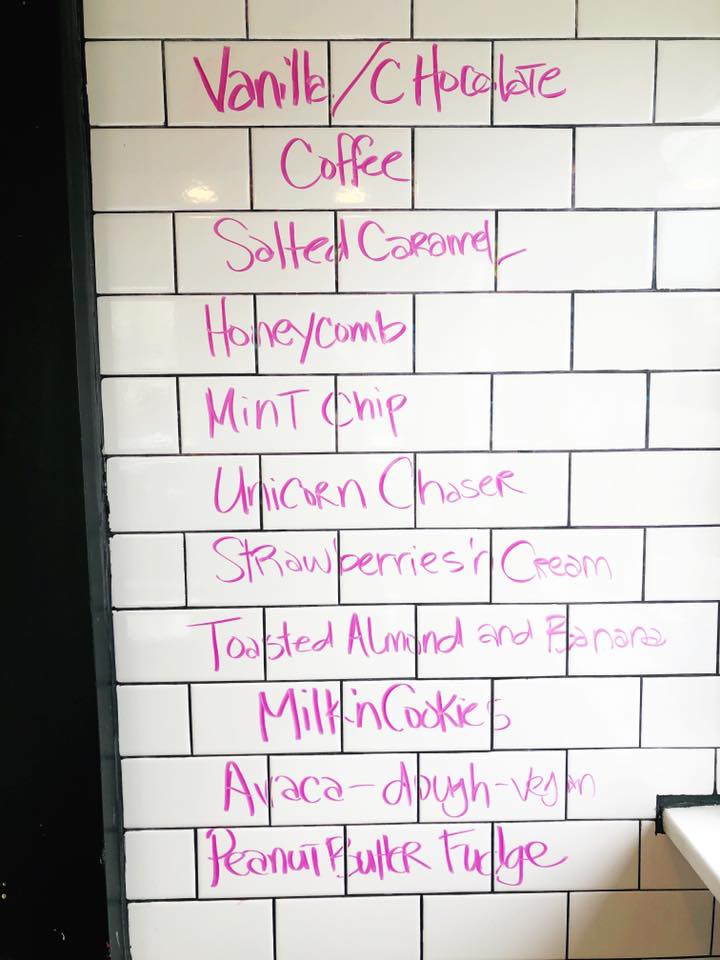 Vanilla/CHocolaTe
Coffee
Salted Caramel
Honeycomb
MinT Chip
Unicorn Chaser
Strawberries'n Cream
Toasted Almond and Banana
Milk'n Cookies
Avaca-dough-vegan
Peanut Butter Fudge